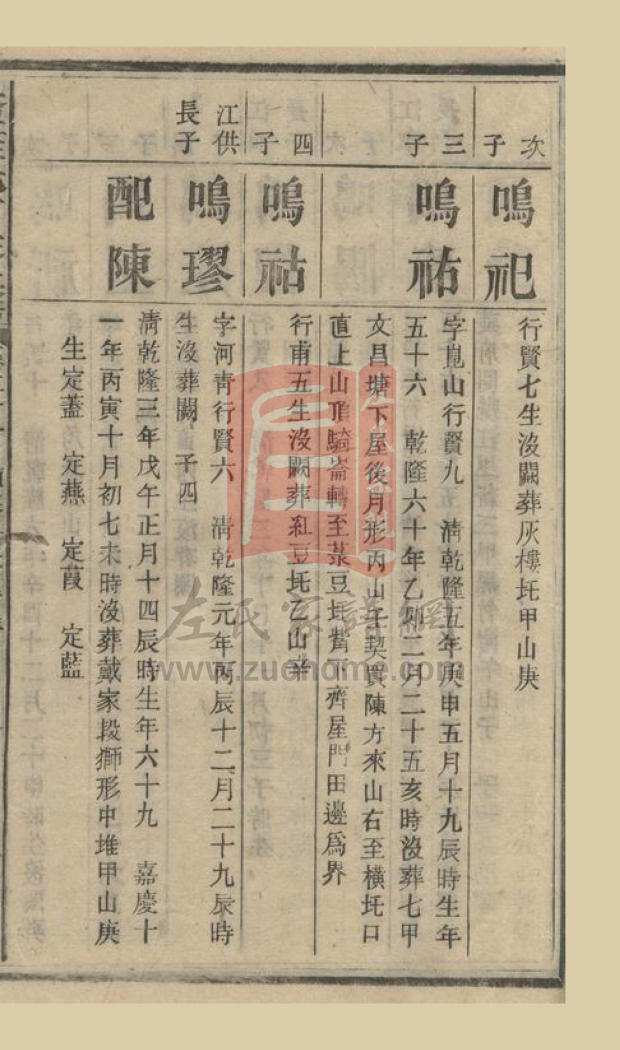 次子
鳴祀
行賢七生沒闕葬灰樓坵甲山庚
三子
鳴祐
字崑山行賢九 清乾隆五年庚申五月十九辰時生年
五十六 乾隆六十年乙卯二月二十五亥時沒葬七甲
文昌塘下屋後月形丙山壬契買陳方來山右至橫坵口
直上山頂騎崙轉至菉豆坵嘴下齊屋門田邊爲界
四子
鳴祜
行甫五生沒闕葬紅豆坵乙山辛
江供長子
鳴璆
字河青行賢六 清乾隆元年丙辰十二月二十九辰時
生沒葬闕 子四
配陳
清乾隆三年戊午正月十四辰時生年六十九 嘉慶十
一年丙寅十月初七未時沒葬戴家段獅形中堆甲山庚
生定蓋 定燕 定葭 定藍
左氏家譜網
www.zuohome.com